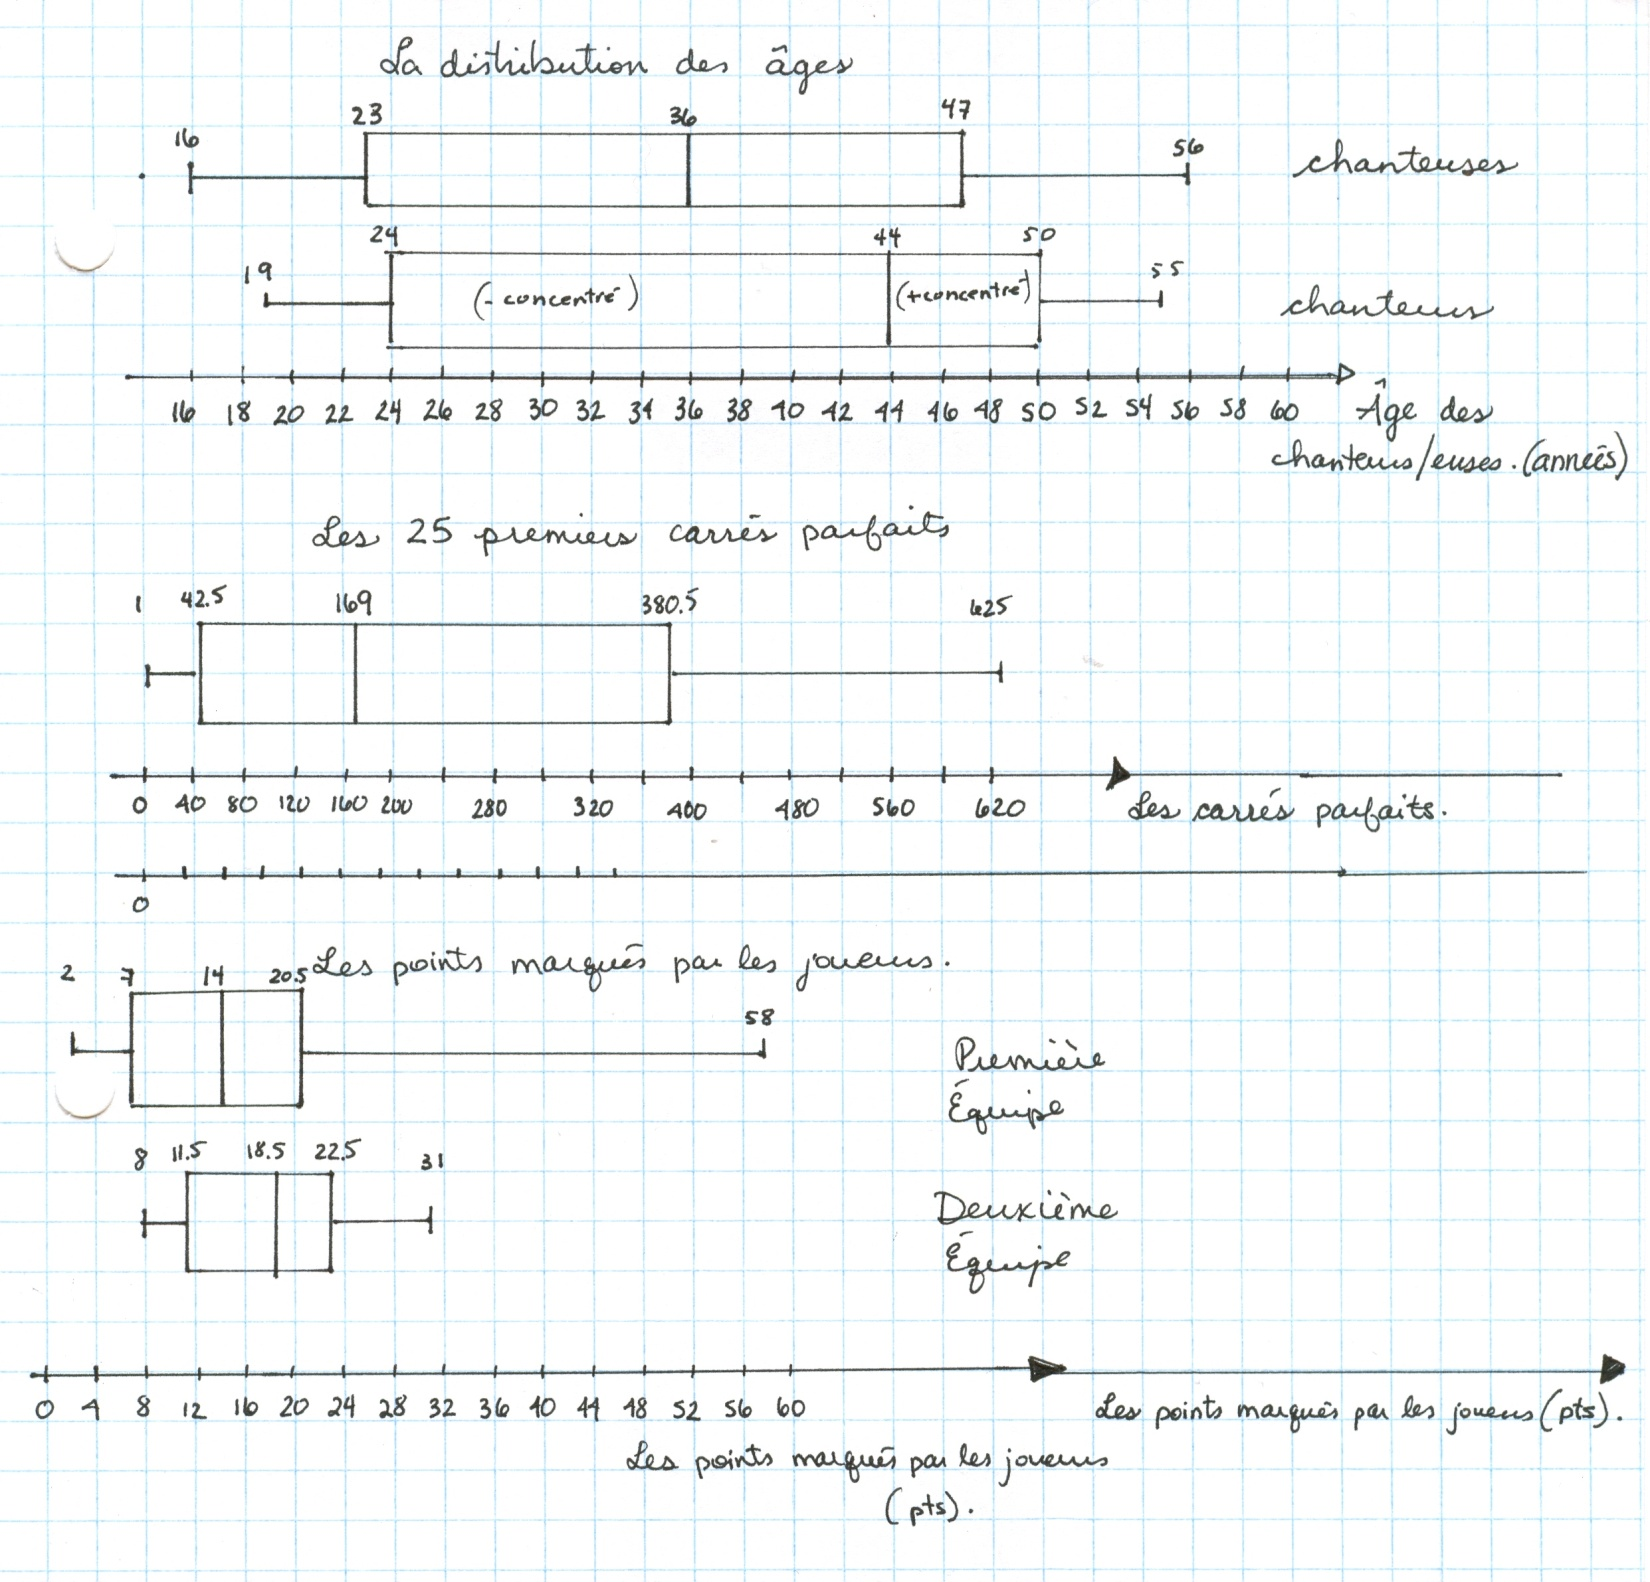 La distribution des âges
16 23 36 47 56 chanteuses
19 24 44 50 55 chanteurs
(- concentré) (+concentré)
16 18 20 22 24 26 28 30 32 34 36 38 40 42 44 46 48 50 52 54 56 58 60 Âge des
chanteurs/euses. (années)
Les 25 premiers carrés parfaits
1 42.5 169 380.5 625
0 40 80 120 160 200 280 320 400 480 560 620 Les carrés parfaits.
0
Les points marqués par les joueurs.
2 7 14 20.5 58
Première
Équipe
8 11.5 18.5 22.5 31
Deuxième
Équipe
0 4 8 12 16 20 24 28 32 36 40 44 48 52 56 60 Les points marqués par les joueurs (pts).
Les points marqués par les joueurs
(pts).